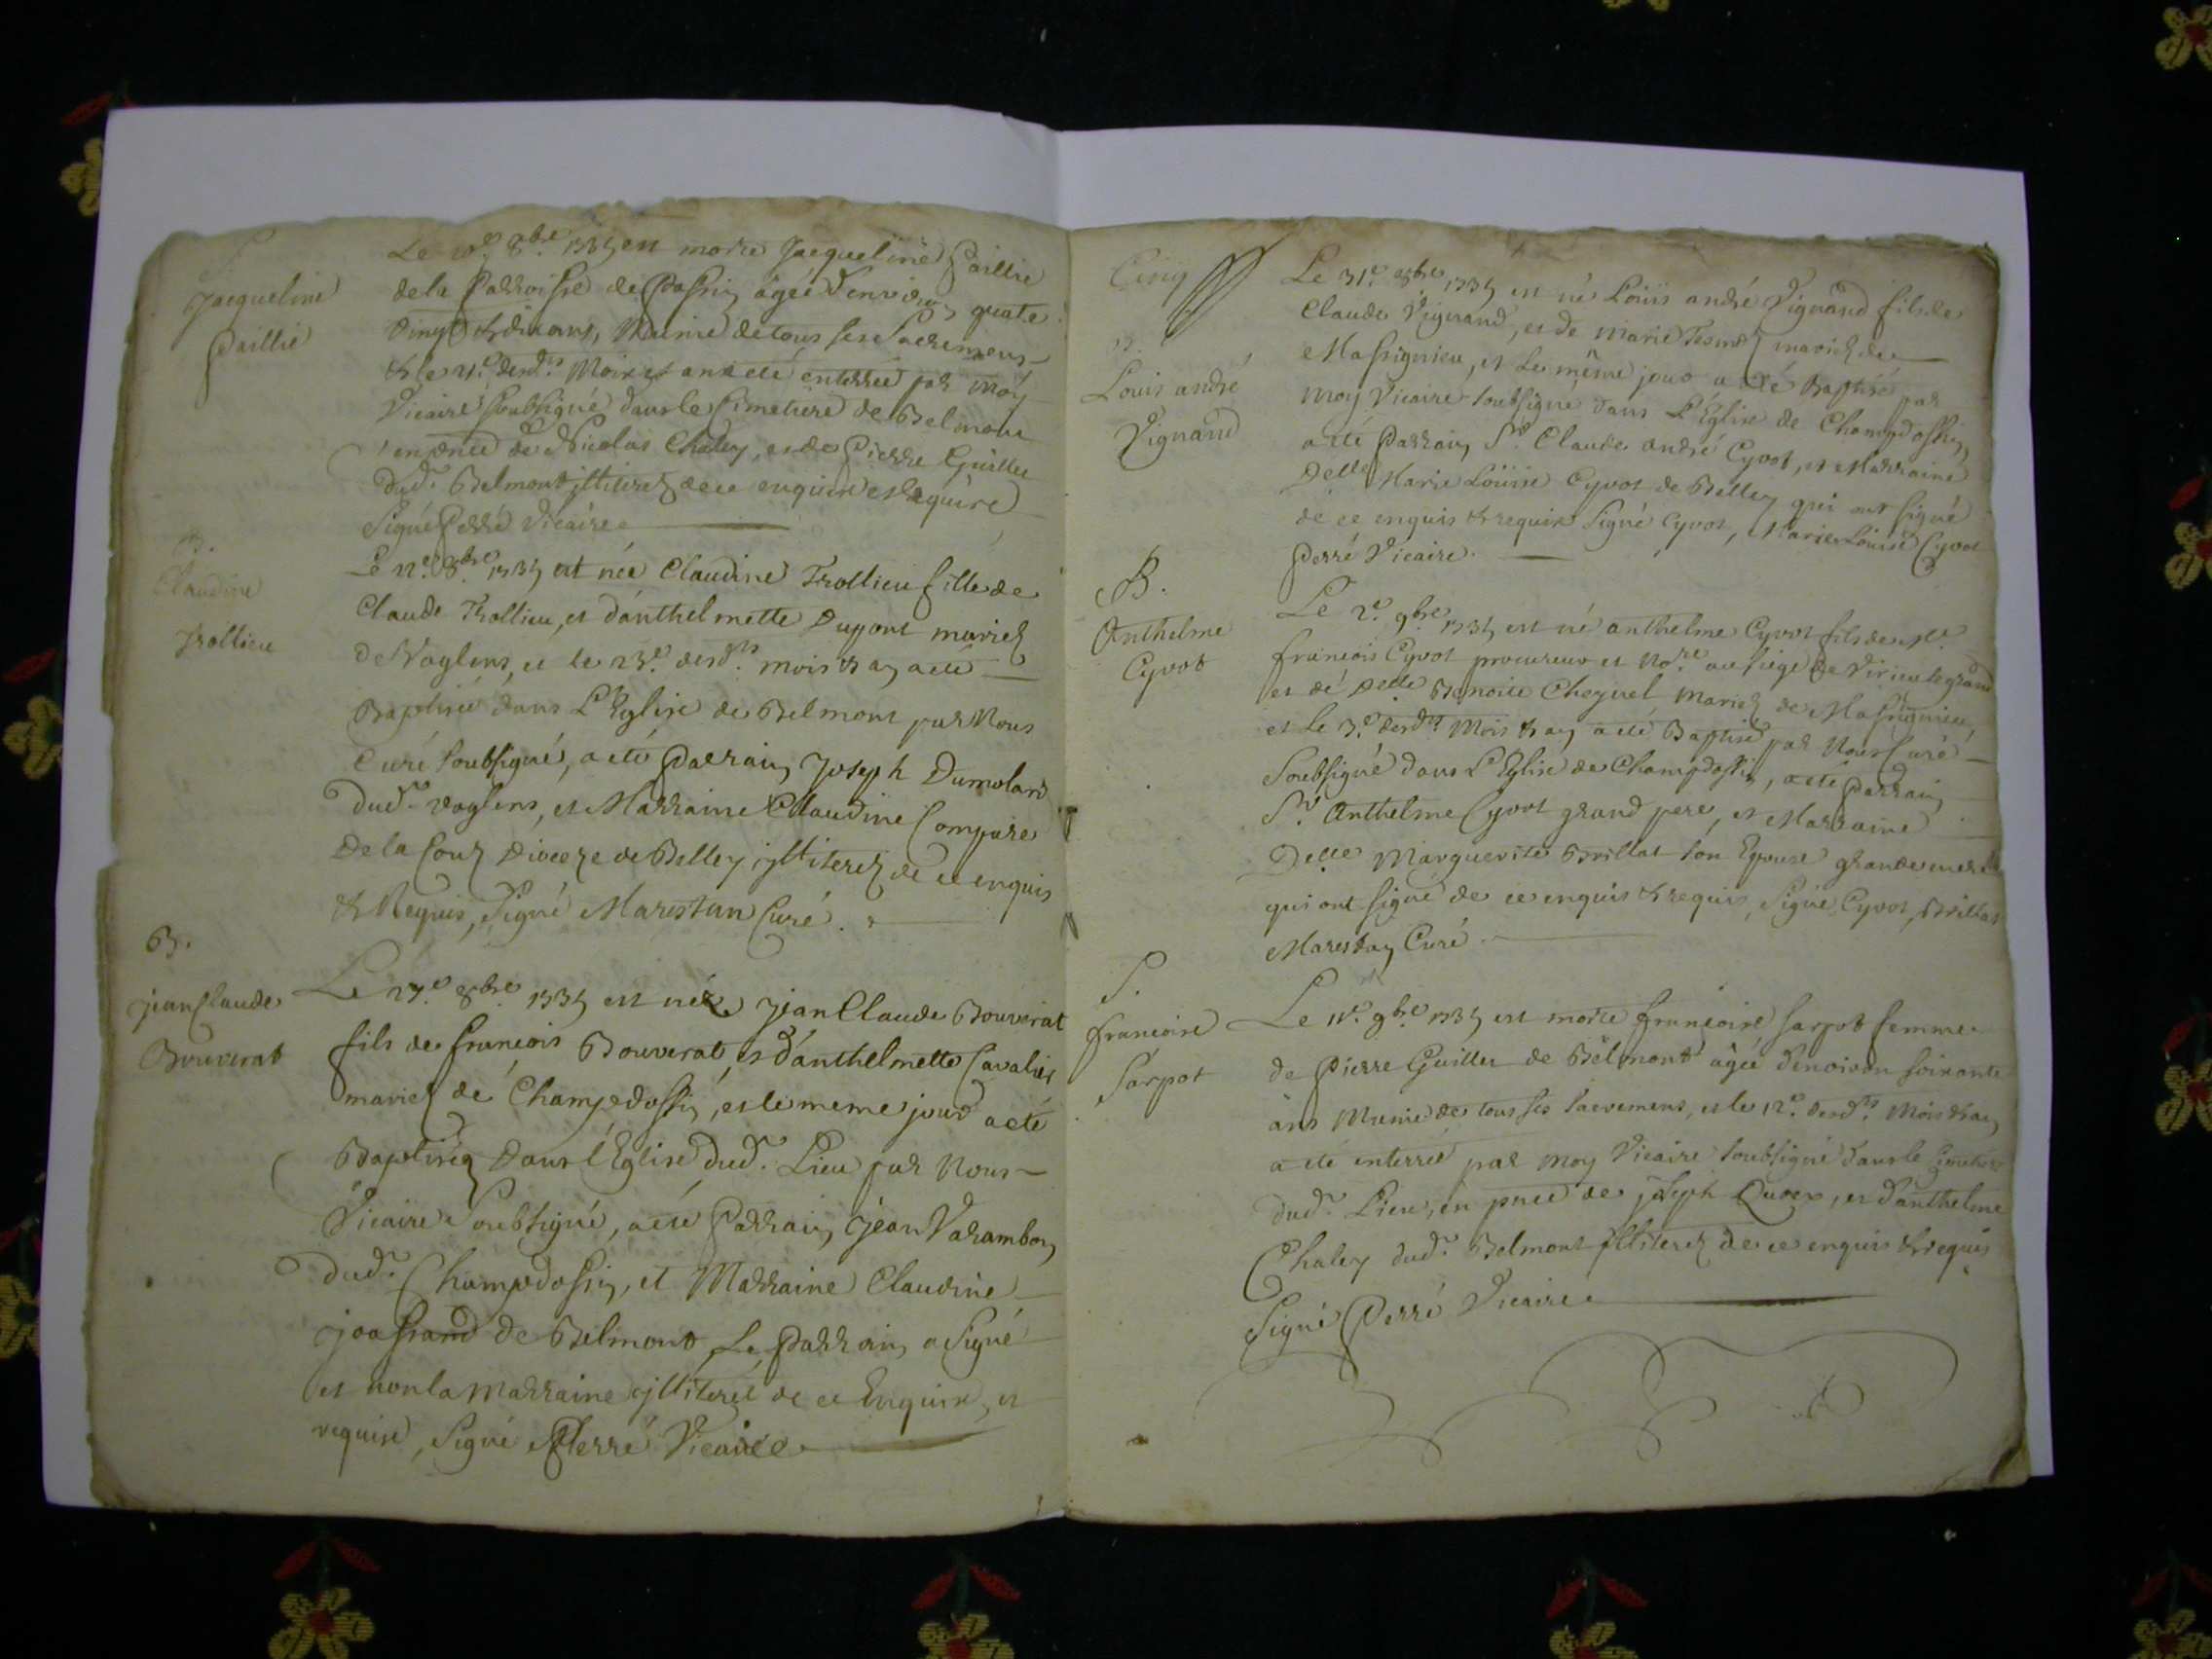 S
Jacqueline
Paillie
Le 20e 8bre 1735 est morte Jacqueline Paillie
de la Parroisse de Passin agée d'environ quatre
vingt & dix ans, Munie de tous ses Sacremens
& le 21e desdts Mois et an a eté enterrée par moy
Vicaire soubsigné dans le Cimetiere de Belmont
en pnce de Nicolas Chaley, et de Pierre Guillet
dud. Belmont illiterez de ce enquis et Requis
Signé Perré Vicaire
B.
Claudine
Trollieu
Le 22e 8bre 1735 est née Claudine Trollieu fille de
Claude Trollieu, et d'anthelmette Dupont mariez
de Voglens, et le 23e desdts mois & an a eté
Baptisée dans L'Eglise de Belmont par Nous
Curé soubsigné, a eté Parrain Joseph Dumolard
dud. voglens, et Marraine Claudine Compare
De la Cour Dioceze de Belley illiterez de ce enquis
& Requis, Signé Marestan Curé.
B.
jean Claude
Bouverat
Le 27e 8bre 1735 est né jean Claude Bouverat
fils de francois Bouverat, et d'anthelmette Cavalier
mariez de Champdossin, et le meme jour a eté
Baptisé Dans l'Eglise dud. Lieu par Nous
Vicaire soubsigné, a eté Parrain jean Varambon
dud. Champdossin, et Marraine Claudine
joassand de Belmont, Le Parrain a Signé
et non la Marraine illiterée de ce Enquise, et
requise, Signé Perré Vicaire
Cinq
B.
Louis andré
Vignand
Le 31e 8bre 1735 est né Louis andré Vignand fils de
Claude Vignand, et de Marie mariez de
Massignieu, et le même jour a eté Baptisé par
moy Vicaire soubsigné dans L'Eglise de Champdossin,
a eté Parrain Sr. Claude andré Cyvot, et Marraine
Delle Marie Louise Cyvot de Belley qui ont signé
de ce enquis & requis Signé Cyvot, Marie Louise Cyvot
Perré Vicaire.
B.
Anthelme
Cyvot
Le 2e 9bre 1735 est né anthelme Cyvot fils de
francois Cyvot procureur et Nore au siege de Virieu le grand
et de Delle Benoite Cheynel mariez de Massignieu,
et le 3e desdts Mois & an a eté Baptisé par Nous Curé
Soubsigné dans L'Eglise de Champdossin, a eté Parrain
Sr. Anthelme Cyvot grand pere, et Marraine
Delle Marguerite Brillat son Epouse grande mere
qui ont signé de ce enquis & requis, Signé Cyvot, Brillat
Marestan Curé.
S.
francoise
Sarpot
Le 11e 9bre 1735 est morte francoise Sarpot femme
de Pierre Guillet de Belmont agée d'environ soixante
ans Munie de tous ses sacremens, et le 12e desdts Mois & an
a eté enterrée par moy Vicaire soubsigné dans le Cimetiere
dud. Lieu, en pnce de joseph Quoex, et d'anthelme
Chaley dud. Belmont illiterez de ce enquis & requis
Signé Perré Vicaire